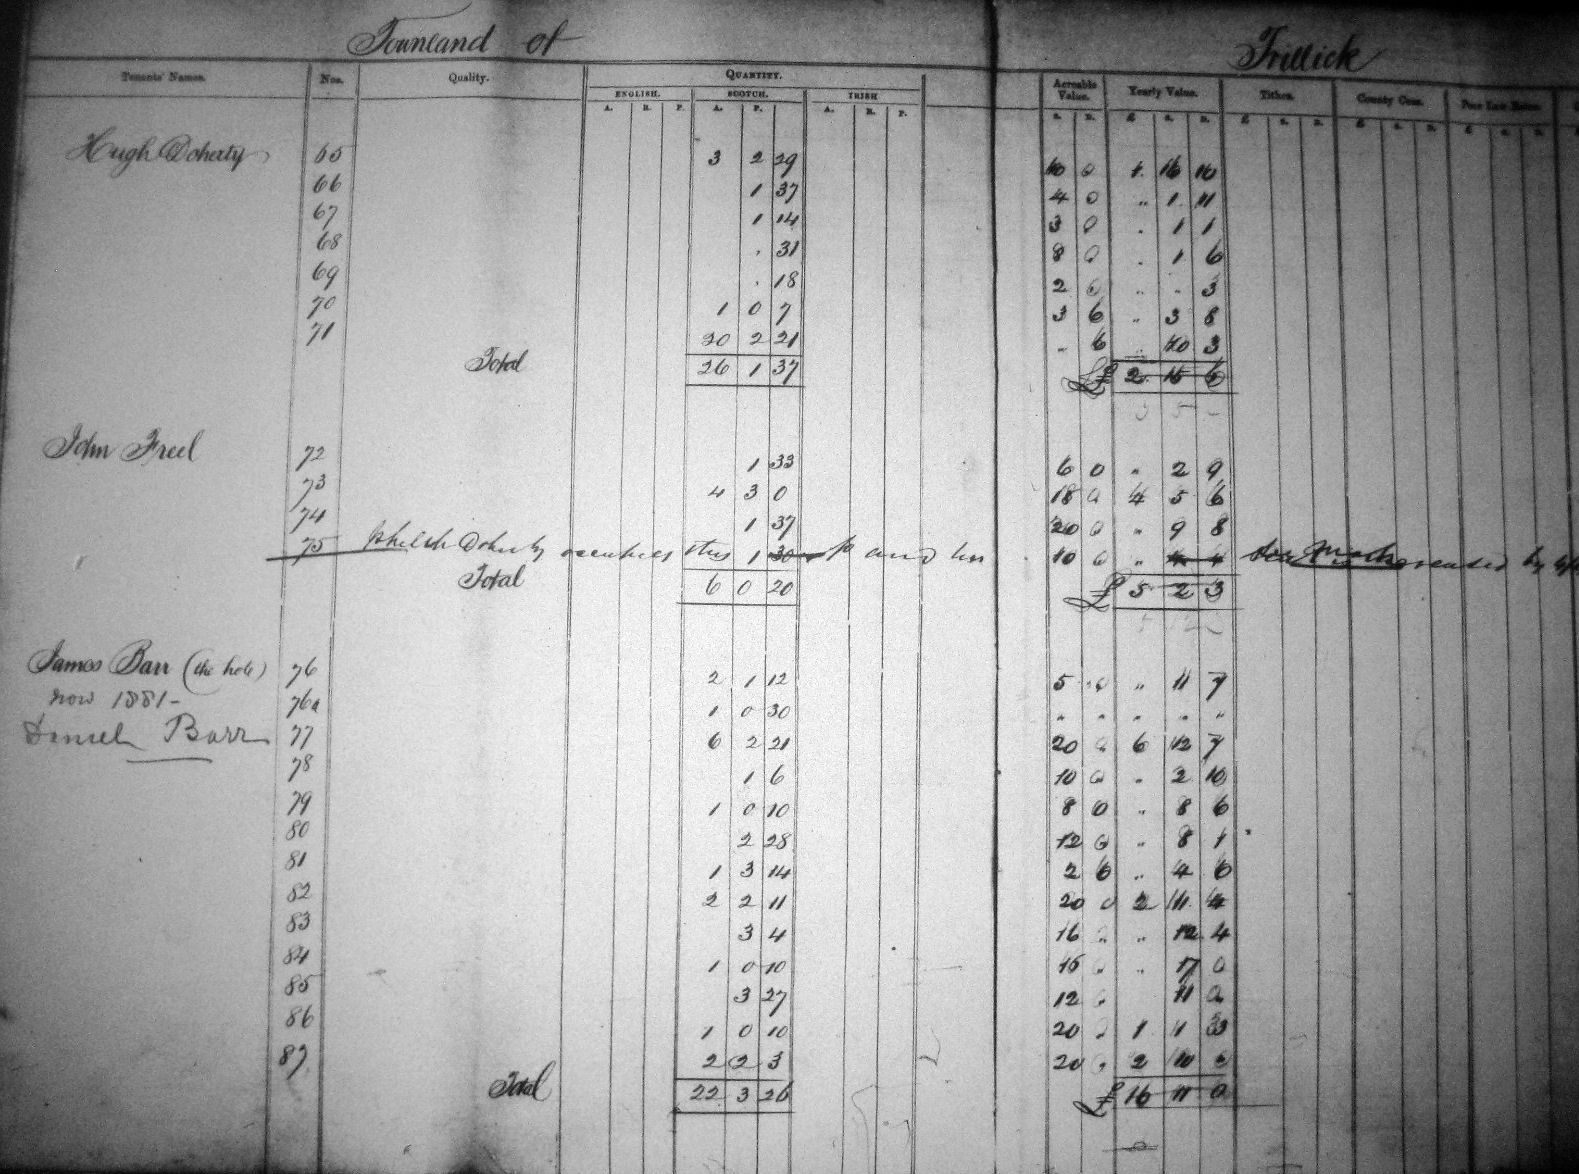 Townland of Trillick
Tenants' Names. Nos. Quality. QUANTITY. Acreable Value. Yearly Value. Tithes. County Cess. Poor Law Rates.
ENGLISH. SCOTCH. IRISH
A. R. P. A. P. A. R. P. s. D. £ s. D. £ s. D. £ s. D. £ s. D.
Hugh Doherty 65 3 2 29 10 0 1 16 10
66 1 37 4 0 " 1 11
67 1 14 3 0 . 1 1
68 . 31 8 0 . 1 6
69 . 18 2 0 " " 3
70 1 0 7 3 6 " 3 8
71 20 2 21 " 6 " 10 3
Total 26 1 37 £ 2 15 6
3 5 -
John Freel 72 1 33 6 0 " 2 9
73 4 3 0 18 0 4 5 6
74 1 37 20 0 " 9 8
75 Doherty occupies this 1 30 and his 10 0 " 4 4 by
Total 6 0 20 £ 5 2 3
5 12 -
James Barr (the hole) 76 2 1 12 5 0 " 11 7
now 1881- 76a 1 0 30 " " " " "
Daniel Barr 77 6 2 21 20 0 6 12 7
78 1 6 10 0 " 2 10
79 1 0 10 8 0 " 8 6
80 2 28 12 0 " 8 1
81 1 3 14 2 6 " 4 6
82 2 2 11 20 0 2 11 4
83 3 4 16 " " 12 4
84 1 0 10 16 0 " 17 0
85 3 27 12 . 11 2
86 1 0 10 20 0 1 1 3
87 2 2 3 20 . 2 10 2
Total 22 3 26 £ 16 11 0